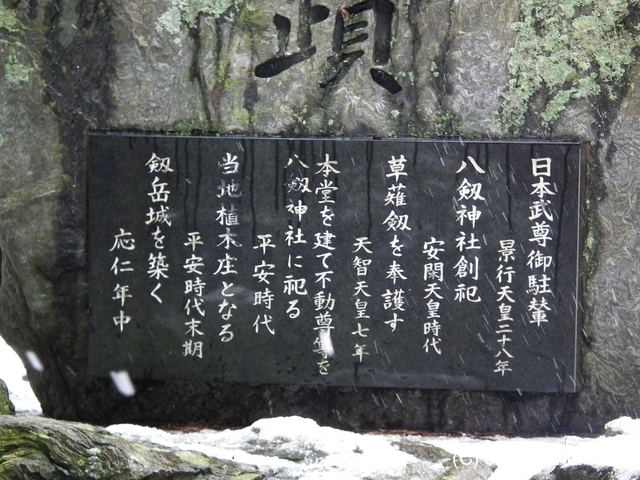 蹟
日本武尊御駐輦
景行天皇二十八年
八剱神社創祀
安閑天皇時代
草薙剱を奉護す
天智天皇七年
本堂を建て不動尊等を
八剱神社に祀る
平安時代
当地植木庄となる
平安時代末期
剱岳城を築く
応仁年中